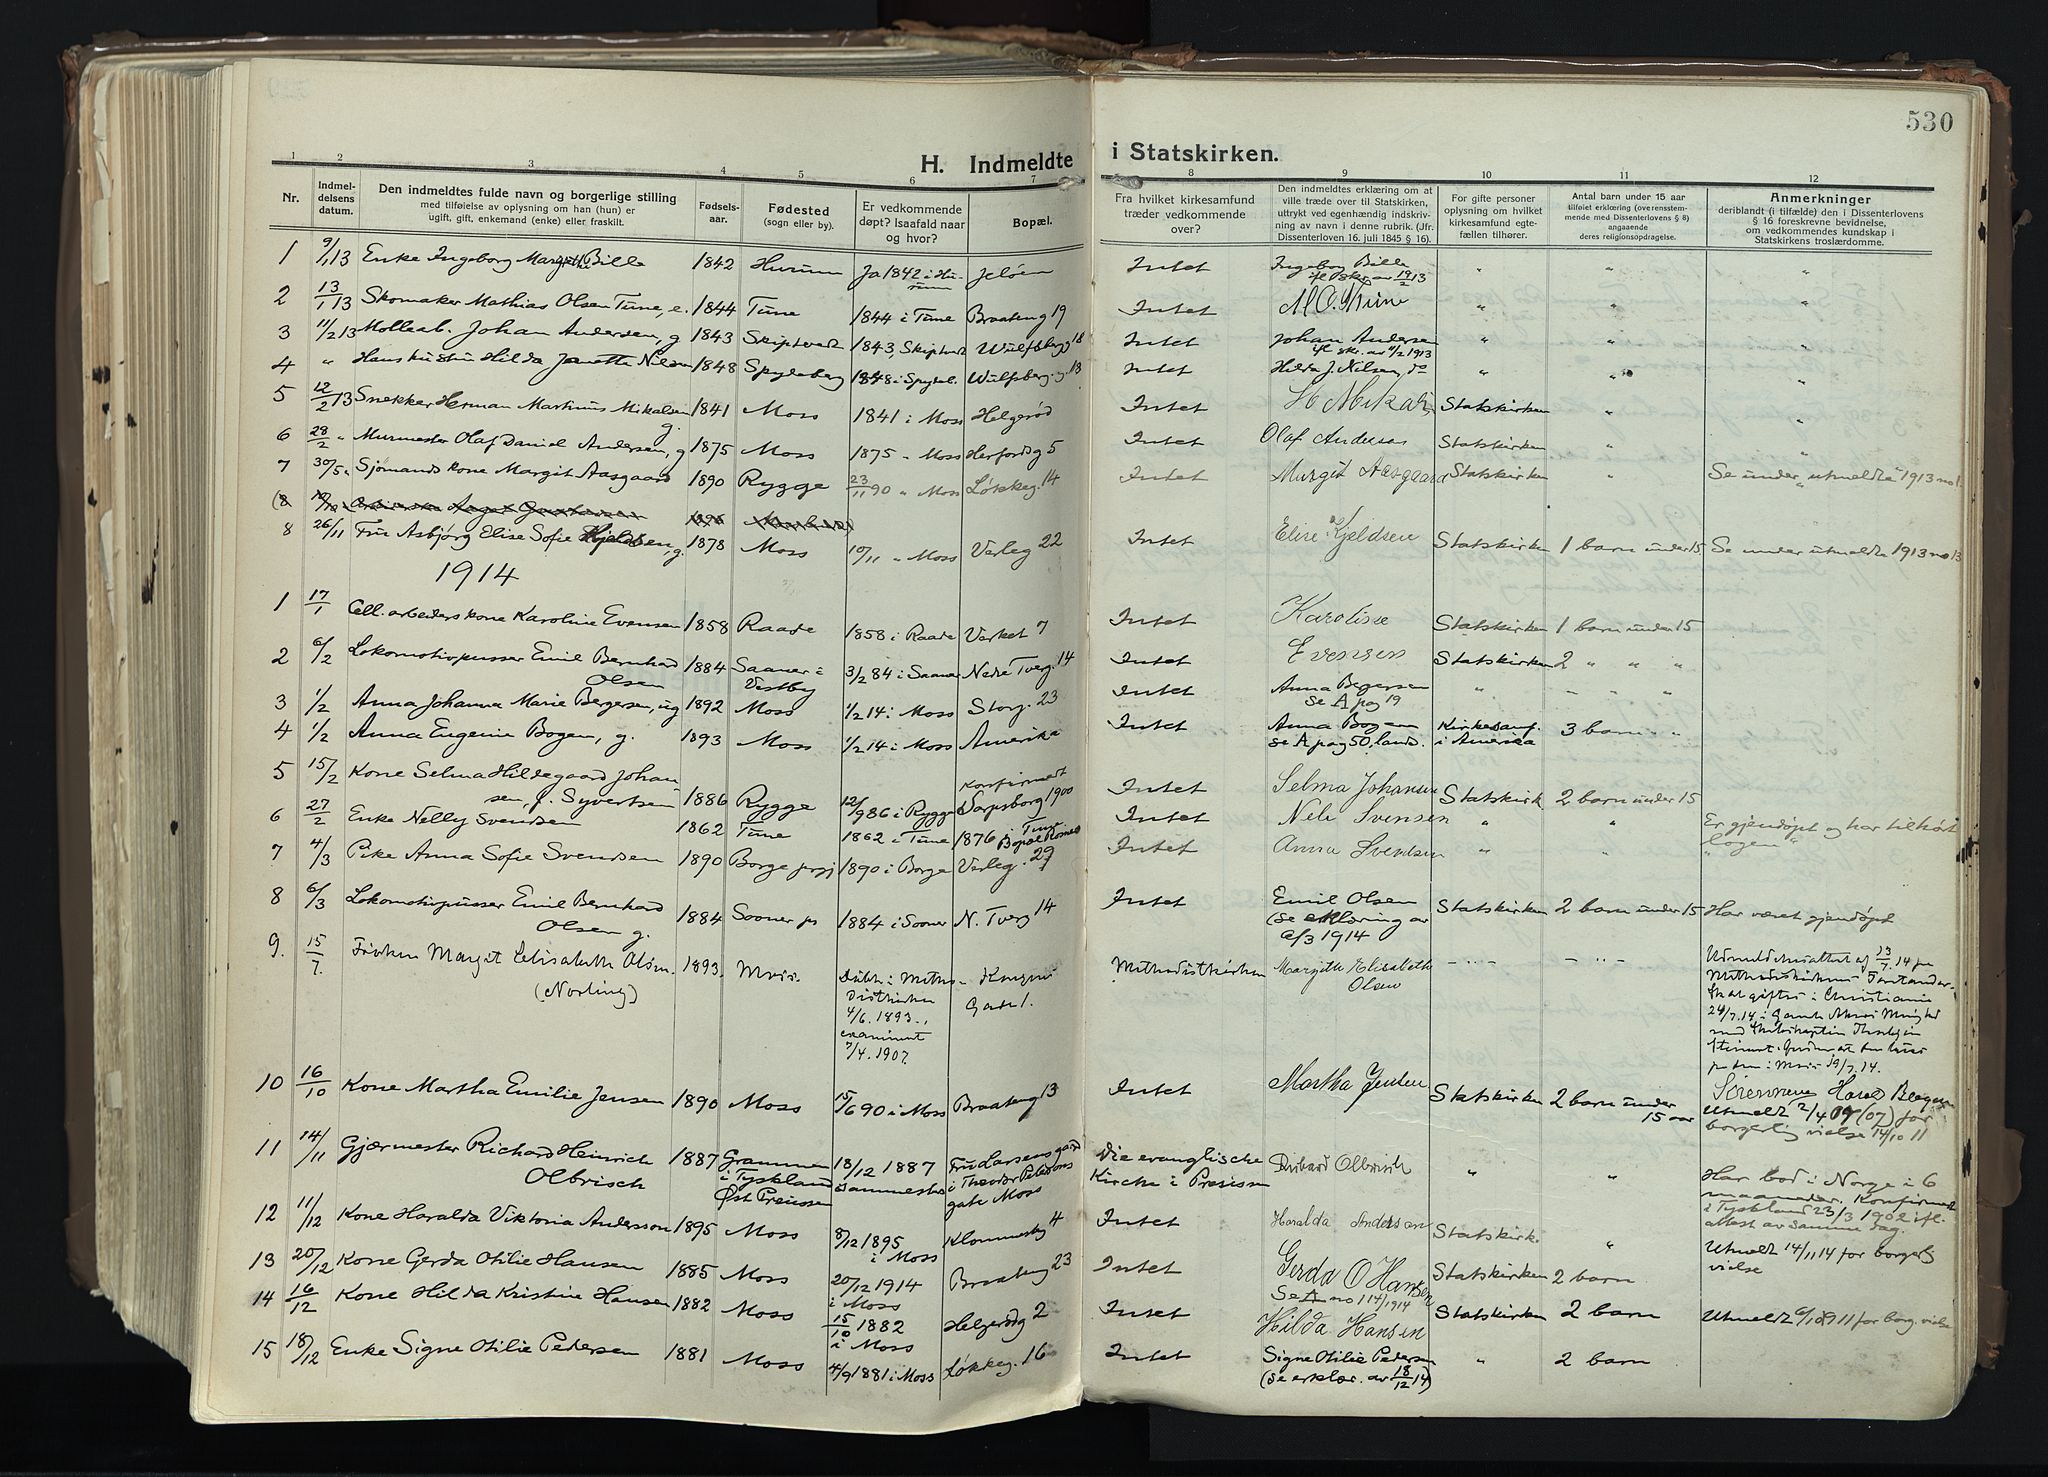 530
H. Indmeldte i Statskirken.
1 2 3 4 5 6 7 8 9 10 11 12
Nr.
Indmel-
delsens
datum.
Den indmeldtes fulde navn og borgerlige stilling
med tilføielse av oplysning om han (hun) er
ugift, gift, enkemand (enke) eller fraskilt.
Fødsels-
aar.
Fødested
(sogn eller by).
Er vedkommende
døpt? Isaafald naar
og hvor?
Bopæl.
Fra hvilket kirkesamfund
træder vedkommende
over?
Den indmeldtes erklæring om at
ville træde over til Statskirken,
uttrykt ved egenhændig indskriv-
ning av navn i denne rubrik. (Jfr.
Dissenterloven 16. juli 1845 § 16).
For gifte personer
oplysning om hvilket
kirkesamfund egte-
fællen tilhører.
Antal barn under 15 aar
tilføiet erklæring (overensstem-
mende med Dissenterlovens § 8)
angaaende
deres religionsopdragelse.
Anmerkninger
deriblandt (i tilfælde) den i Dissenterlovens
§ 16 foreskrevne bevidnelse,
om vedkommendes kundskap i
Statskirkens troslærdomme.
1 9/1 13 Enke Ingeborg Margrethe Bille 1842 Hurum Ja 1842 i Hurum Jeløen Intet Ingeborg Bille ifl skr. av 19/2 13 " " "
2 13/1 13 Skomaker Mathias Olsen Tune, e. 1844 Tune 1844 i Tune Braateng 19 Intet M. O. Tune " " "
3 11/2 13 Mølleab. Johan Andersen, g 1843 Skiptvedt 1843, Skiptvedt Wulfsberg g 18 Intet Johan Andersen ifl. skr. av 11/2 1913 " " "
4 " Hans hustru Hilda Janette Nilsen 1848 Spydeberg 1848 i Spydeb. Wulfsberg. g. 13 Intet Hilda J. Nilsen, do " " "
5 12/2 13 Snekker Herman Martinus Mikalsen g. 1841 Moss 1841 i Moss Helgerød Intet H Mikals Statskirken " "
6 28/2 " Murmester Olaf Daniel Andersen, g 1875 Moss 1875 " Moss Herfordsg 5 Intet Olaf Andersen Statskirken " "
7 30/5 " Sjømands kone Margit Aasgaard 1890 Rygge 23/11 90 " Moss Løkkeg. 14 Intet Margit Aasgaard Statskirken " Se under "utmeldte" 1913 no 1.
(8 1896
8 26/11 Fru Asbjørg Elise Sofie Kjeldsen, g. 1878 Moss 10/11 " Moss Verleg 22 Intet Elise Kjeldsen Statskirken 1 barn under 15 Se under utmeldte 1913 no 13
1914
1 17/1 Cell. arbeiders kone Karoline Evensen 1858 Raade 1858 i Raade Verket 7 Intet Karoline Evensen Statskirken 1 barn under 15
2 6/2 Lokomotivpusser Emil Bernhard Olsen 1884 Saaner i Vestby 3/2 84 i Saaner Nedre Tverg. 14 Intet Statskirken 2 " " "
3 1/2 Anna Johanna Marie Bergersen, ug 1892 Moss 1/2 14 i Moss Storg. 23 Intet Anna Begersen Se A pag 19 " " " "
4 1/2 Anna Eugenie Bogen, g. 1893 Moss 1/2 14 i Moss Amerika Intet Anna Bogen se A pag 50, lands. Kirkesamf. i Amerika 3 barn " "
5 15/2 Kone Selma Hildegaard Johansen, f. Syvertsen 1886 Rygge 12/9 86 i Rygge Konfirmert Sarpsborg 1900 Intet Selma Johansen Statskirk 2 barn under 15
6 27/2 Enke Nelly Svendsen 1862 Tune 1862 i Tune 1876 i Tune Intet Neli Svensen " " Er gjendøpt og har tilhørt logen
7 4/3 Pike Anna Sofie Svendsen 1890 Borge prgj 1890 i Borge Verleg. 29 Intet Anna Svendsen " " "
8 6/3 Lokomotivpusser Emil Bernhard Olsen g. 1884 Sooner ps 1884 i Sooner N. Tverg 14 Intet Emil Olsen (Se erklæring av 6/3 1914 Statskirken 2 barn under 15 Har været gjendøpt
9. 15/7. Frøken Margit Elisabeth Olsen. (Norling) 1893. Moss. Døbt i Methodistkirken 4/6. 1893., 7/4. 1907. Kongens Gade 1. Methodistkirken Margith Elisabeth Olsen 13/7. 14 Methodistkirkens Forstander. Skal giftes i Christiania 24/7. 14 i Gamle Akers Menighed i Moss 19/7. 14.
10 16/10 Kone Martha Emilie Jensen 1890 Moss 15/6 90 i Moss Braateng 13 Intet Martha Jensen Statskirken 2 barn under 15 aar Utmeldt 2/4 09 (07) for borgerlig vielse 14/10 11
11 14/11 Gjærmester Richard Heinrich Olbrisch 1887 Grammen i Tyskland Øst Preussen 18/12 1887 sammesteds Fru Larsens gaard i Theodor Petersons gate Moss Die evanglische Kirche i Preussen Richard Olbrisch " " Har bod i Norge i 6 maaneder. Konfirmert i Tyskland 23/3 1902 ifl. attest av samme dag.
12 11/12 Kone Haralda Viktoria Andersson 1895 Moss 8/12 1895 i Moss Klommesteg 4 Intet Haralda Anderson Statskirk. " Utmeldt 14/11 14 for borgerlig vielse
13 20/12 Kone Gerda Otilie Hansen 1885 Moss 20/12 1914 i Moss Braateng 23 Intet Gerda O Hansen Se A no 114/1914 Statskirken 2 barn
14 16/12 Kone Hilda Kristine Hansen 1882 Moss 15/10 1882 i Moss Helgerødg 2 Intet Hilda Hansen Statskirken 2 barn Utmeldt 6/10 1911 for borg. vielse
15 18/12 Enke Signe Otilie Pedersen 1881 Moss 4/9 1881 i Moss Løkkeg. 16 Intet Signe Otilie Pedersen (se erklær. av 18/12 14) " 2 barn